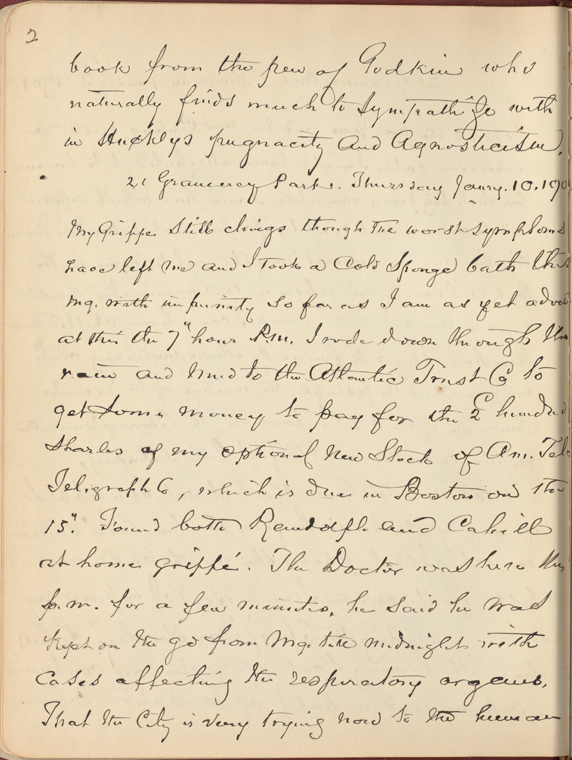 2
book from the pen of Godkin who
naturally finds much to sympathize with
in Huxleys pugnacity and Agnosticism.
21 Gramercy Park. Thursday Jany. 10. 190
My Grippe still clings though the worst symptoms
have left me and I took a Cold Sponge bath this
mg. with impunity so far as I am as yet advis
at this the 7" hour P.m. I rode down through the
rain and mud to the Atlantic Trust Co to
get some money to pay for the 2 hundred
shares of my optional new Stock of Am. Tel
Telegraph Co, which is due in Boston on the
15". Found both Rendolph and Cahill
at home grippé. The Doctor was here this
p.m. for a few minutes, he said he was
kept on the go from mg. till midnight with
cases affecting the respiratory organs.
That the City is very trying now to the human